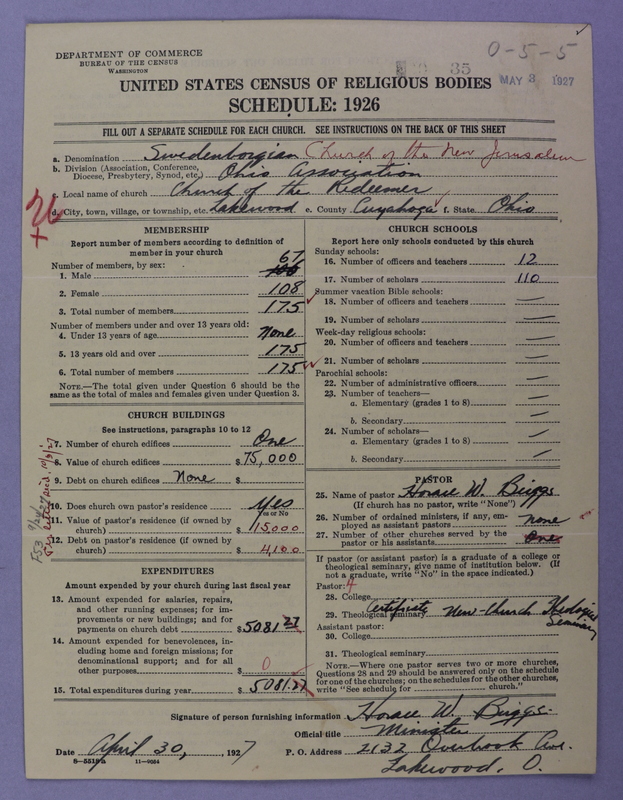 0-5-5
DEPARTMENT OF COMMERCE
BUREAU OF THE CENSUS
WASHINGTON
35
MAY 3 1927
UNITED STATES CENSUS OF RELIGIOUS BODIES
SCHEDULE: 1926
FILL OUT A SEPARATE SCHEDULE FOR EACH CHURCH. SEE INSTRUCTIONS ON THE BACK OF THIS SHEET
a. Denomination Swedenborgian Church of the New Jerusalem
b. Division (Association, Conference, Diocese, Presbytery, Synod, etc.) Ohio Association
c. Local name of church Church of the Redeemer
d. City, town, village, or township, etc. Lakewood e. County Cuyahoga f. State Ohio
MEMBERSHIP
Report number of members according to definition of
member in your church
Number of members, by sex: 67
1. Male
2. Female 108
3. Total number of members 175
Number of members under and over 13 years old:
4. Under 13 years of age None
5. 13 years old and over 175
6. Total number of members 175
NOTE.—The total given under Question 6 should be
the same as the total of males and females given under Question 3.
CHURCH BUILDINGS
See instructions, paragraphs 10 to 12
7. Number of church edifices One
8. Value of church edifices $ 75,000
9. Debt on church edifices None $
10. Does church own pastor's residence Yes
Yes or No
11. Value of pastor's residence (if owned by
church) $ 15000
12. Debt on pastor's residence (if owned by
church) $ 4,100
EXPENDITURES
Amount expended by your church during last fiscal year
13. Amount expended for salaries, repairs,
and other running expenses; for im-
provements or new buildings; and for
payments on church debt $ 5081.27
14. Amount expended for benevolences, in-
cluding home and foreign missions; for
denominational support; and for all
other purposes $ 0
15. Total expenditures during year $ 5081.27
CHURCH SCHOOLS
Report here only schools conducted by this church
Sunday schools:
16. Number of officers and teachers 12
17. Number of scholars 110
Summer vacation Bible schools:
18. Number of officers and teachers —
19. Number of scholars —
Week-day religious schools:
20. Number of officers and teachers —
21. Number of scholars —
Parochial schools:
22. Number of administrative officers —
23. Number of teachers—
a. Elementary (grades 1 to 8) —
b. Secondary —
24. Number of scholars—
a. Elementary (grades 1 to 8) —
b. Secondary —
PASTOR
25. Name of pastor Horace W. Briggs
(If church has no pastor, write "None")
26. Number of ordained ministers, if any, em-
ployed as assistant pastors none
27. Number of other churches served by the
pastor or his assistants One
If pastor (or assistant pastor) is a graduate of a college or
theological seminary, give name of institution below. (If
not a graduate, write "No" in the space indicated.)
Pastor:
28. College
29. Theological seminary Certificate New-Church Theological Seminary
Assistant pastor:
30. College
31. Theological seminary
NOTE.—Where one pastor serves two or more churches,
Questions 28 and 29 should be answered only on the schedule
for one of the churches; on the schedules for the other churches,
write "See schedule for church."
Signature of person furnishing information Horace W. Briggs
Official title Minister
Date April 30, 1927 P. O. Address 2132 Overbook Ave.
Lakewood, O.
8—5519a 11—9064